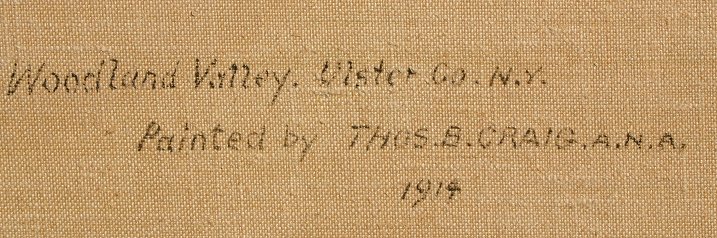 Woodland Valley. Ulster Co. N.Y.
Painted by THOS.B.CRAIG.A.N.A.
1914